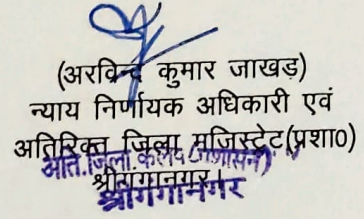 (अरविन्द कुमार जाखड़)
न्याय निर्णायक अधिकारी एवं
अतिरिक्त जिला मजिस्ट्रेट(प्रशा0)
अति.जिला कलेक्टर(प्रशासन)
श्रीगंगानगर।
श्रीगंगानगर